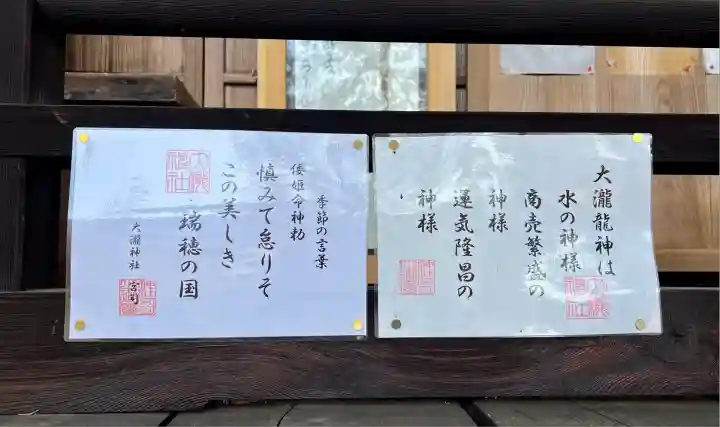 大瀧龍神は
水の神様
商売繁盛の
神様
運気隆昌の
神様
季節の言葉
倭姫命神勅
慎みて怠りそ
この美しき
瑞穂の国
大瀧神社
宮司
大瀧
神社